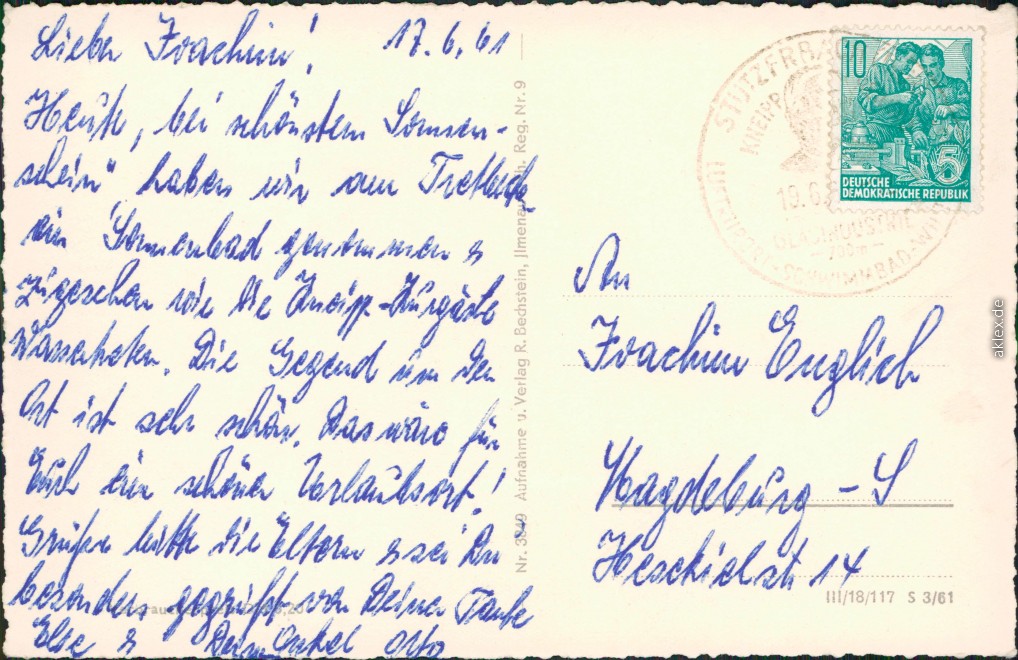 Lieber Joachim! 17.6.61
Heute, bei schönstem Sonnen-
schein haben wir am Tretbecken
ein Sonnenbad genommen &
zugesehen wie die Kneipp-Kurgäste
Wassertreten. Die Gegend um den
Ort ist sehr schön. Das wäre für
Euch ein schöner Urlaubsort!
Grüße bitte die Eltern & sei Du
besonders gegrüßt von Deiner Tante
Else & Deim Onkel Otto
Nr. 3849 Aufnahme u. Verlag R. Bechstein, Jlmenau Reg. Nr. 9
STÜTZERBACH
KNEIPP
19.6.
GLASINDUSTRIE
SCHWIMMBAD
10
5
DEUTSCHE
DEMOKRATISCHE REPUBLIK
An
Joachim Englich
Magdeburg - S
Heskielstr 14
III/18/117 S 3/61
aklex.de